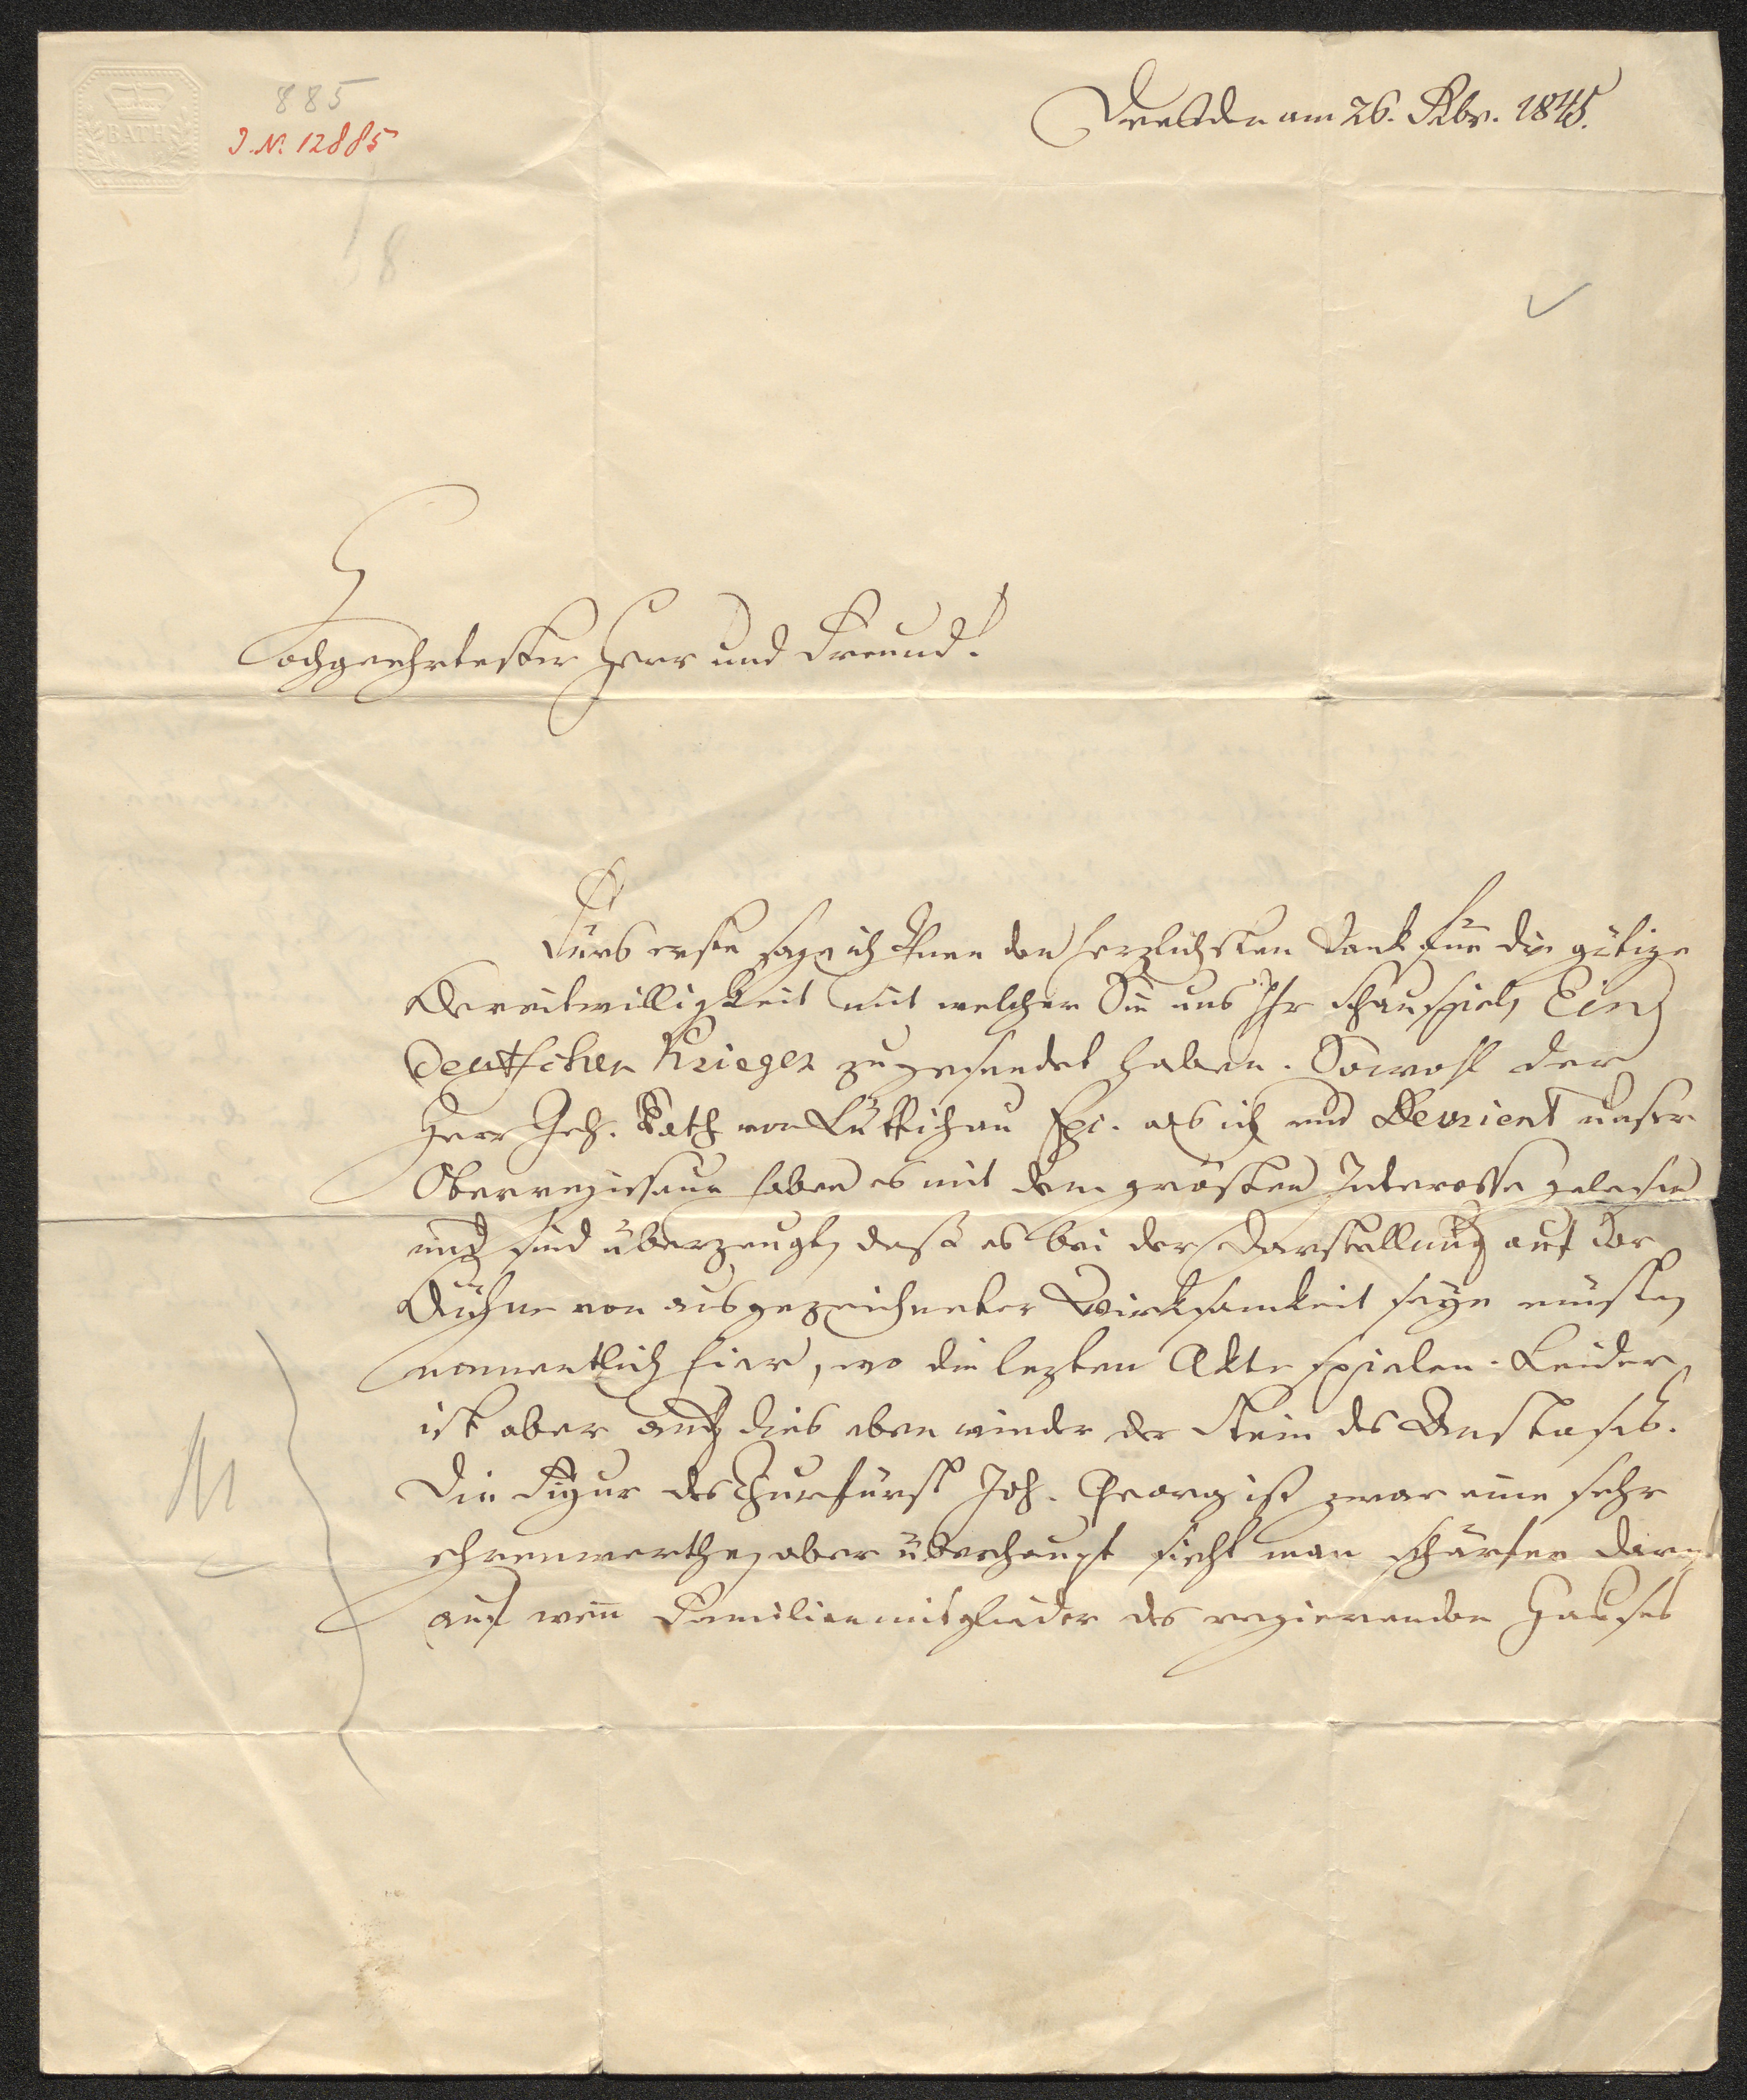 885
J. N. 12885
BATH
8
Dresden am 26. Fbr. 1845.
Hochgeehrtester Herr und Freund!
Fürs erste sage ich Ihnen den herzlichsten Dank für die gütige
Bereitwilligkeit mit welcher Sie uns Ihr Schauspiel, Ein
deutscher Krieger zugesendet haben. Sowohl der
Herr Geh. Rath von Lüttichau Exc. als ich und Devrient unser
Oberregisseur haben es mit dem grösten Interesse gelesen
und sind überzeugt, daß es bei der Darstellung auf der
Bühne von ausgezeichneter Wirksamkeit seyn müsste,
namentlich hier, wo die lezten Akte spielen. Leider
ist aber auch dies eben wieder der Stein des Anstoses.
Die Figur des Churfürst Joh. Georg ist zwar eine sehr
ehrenwerthe, aber überhaupt sieht man schärfer
auf wenn Familienmitglieder des regierenden Hauses